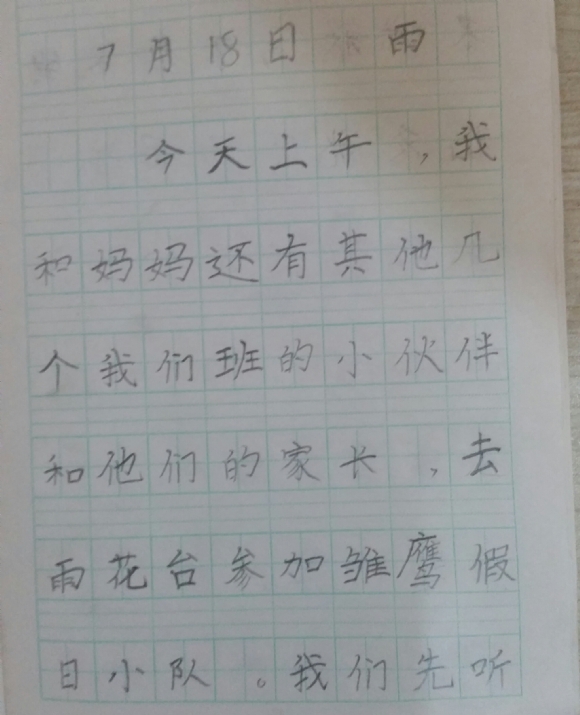 7月18日 雨
今天上午，我
和妈妈还有其他几
个我们班的小伙伴
和他们的家长，去
雨花台参加雏鹰假
日小队。我们先听